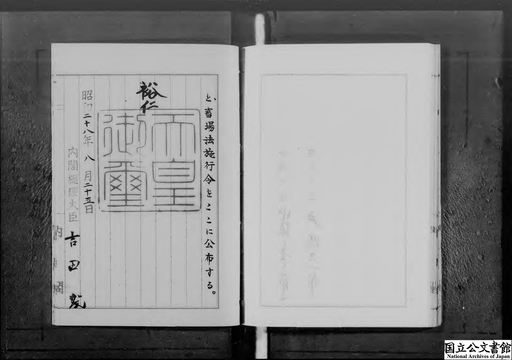 と畜場法施行令をここに公布する。
裕仁
天皇御璽
昭和二十八年八月二十五日
内閣総理大臣 吉田茂
内閣
国立公文書館
National Archives of Japan